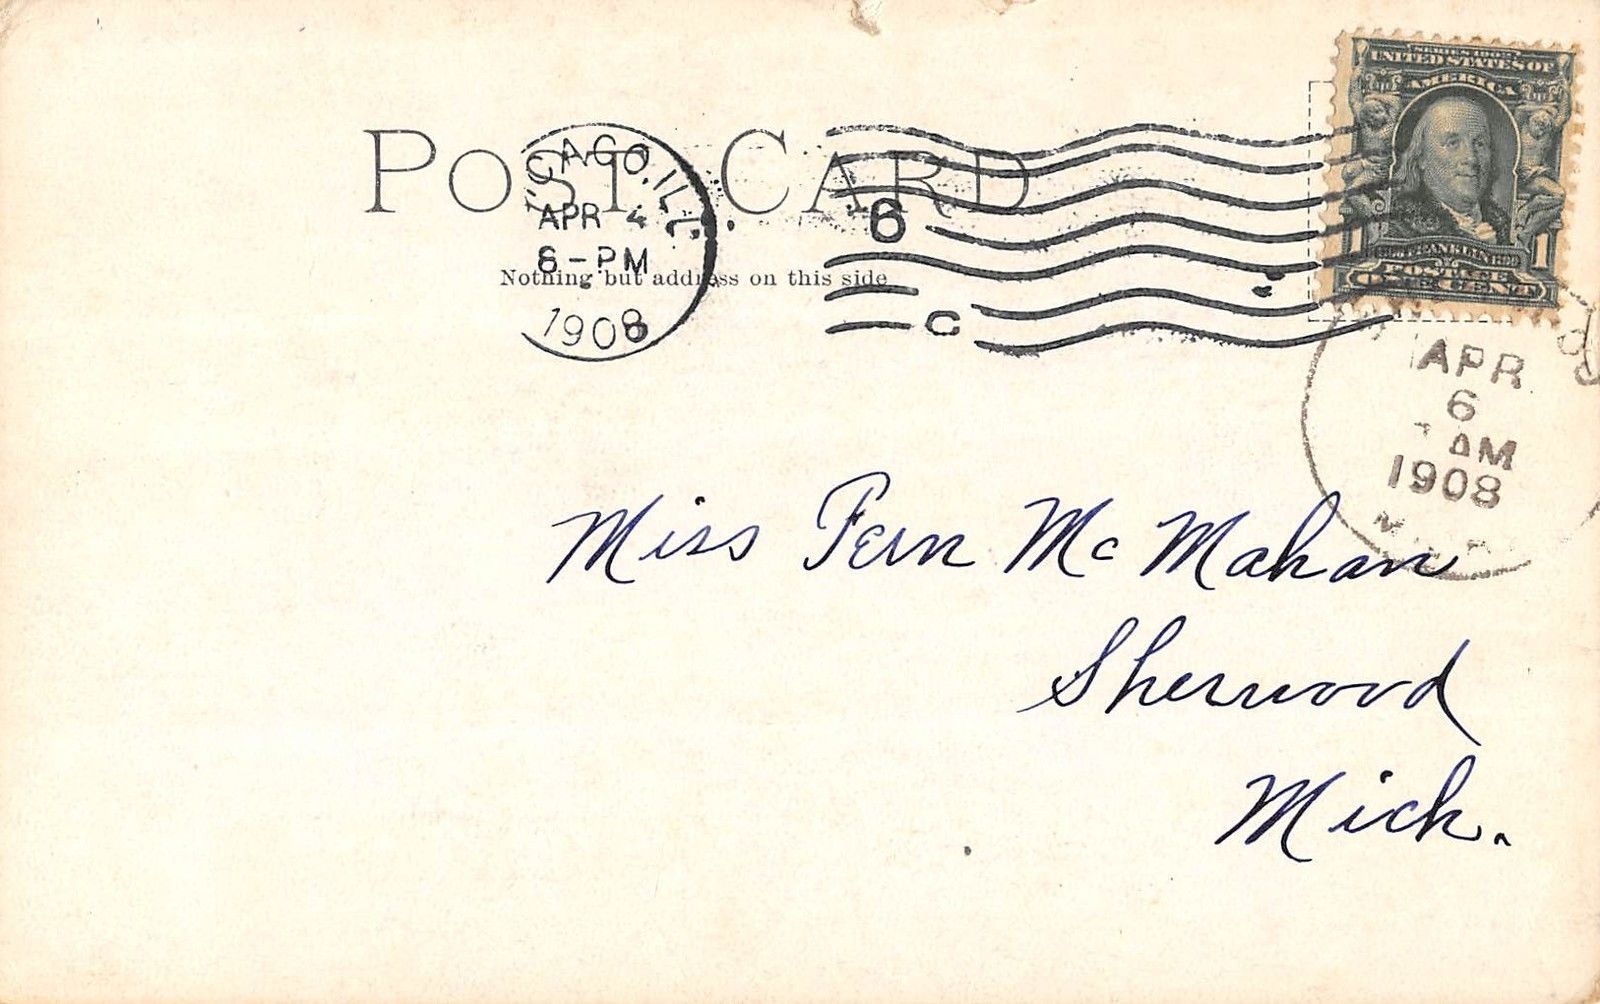 SERIES 1902
UNITED STATES OF
AMERICA
POST CARD
CAGO, ILL.
APR 4
6-PM
1908
6
C
Nothing but address on this side
FRANKLIN
1 1
POSTAGE
ONE CENT
APR
6
AM
1908
Miss Fern McMahan
Sherwood
Mich.